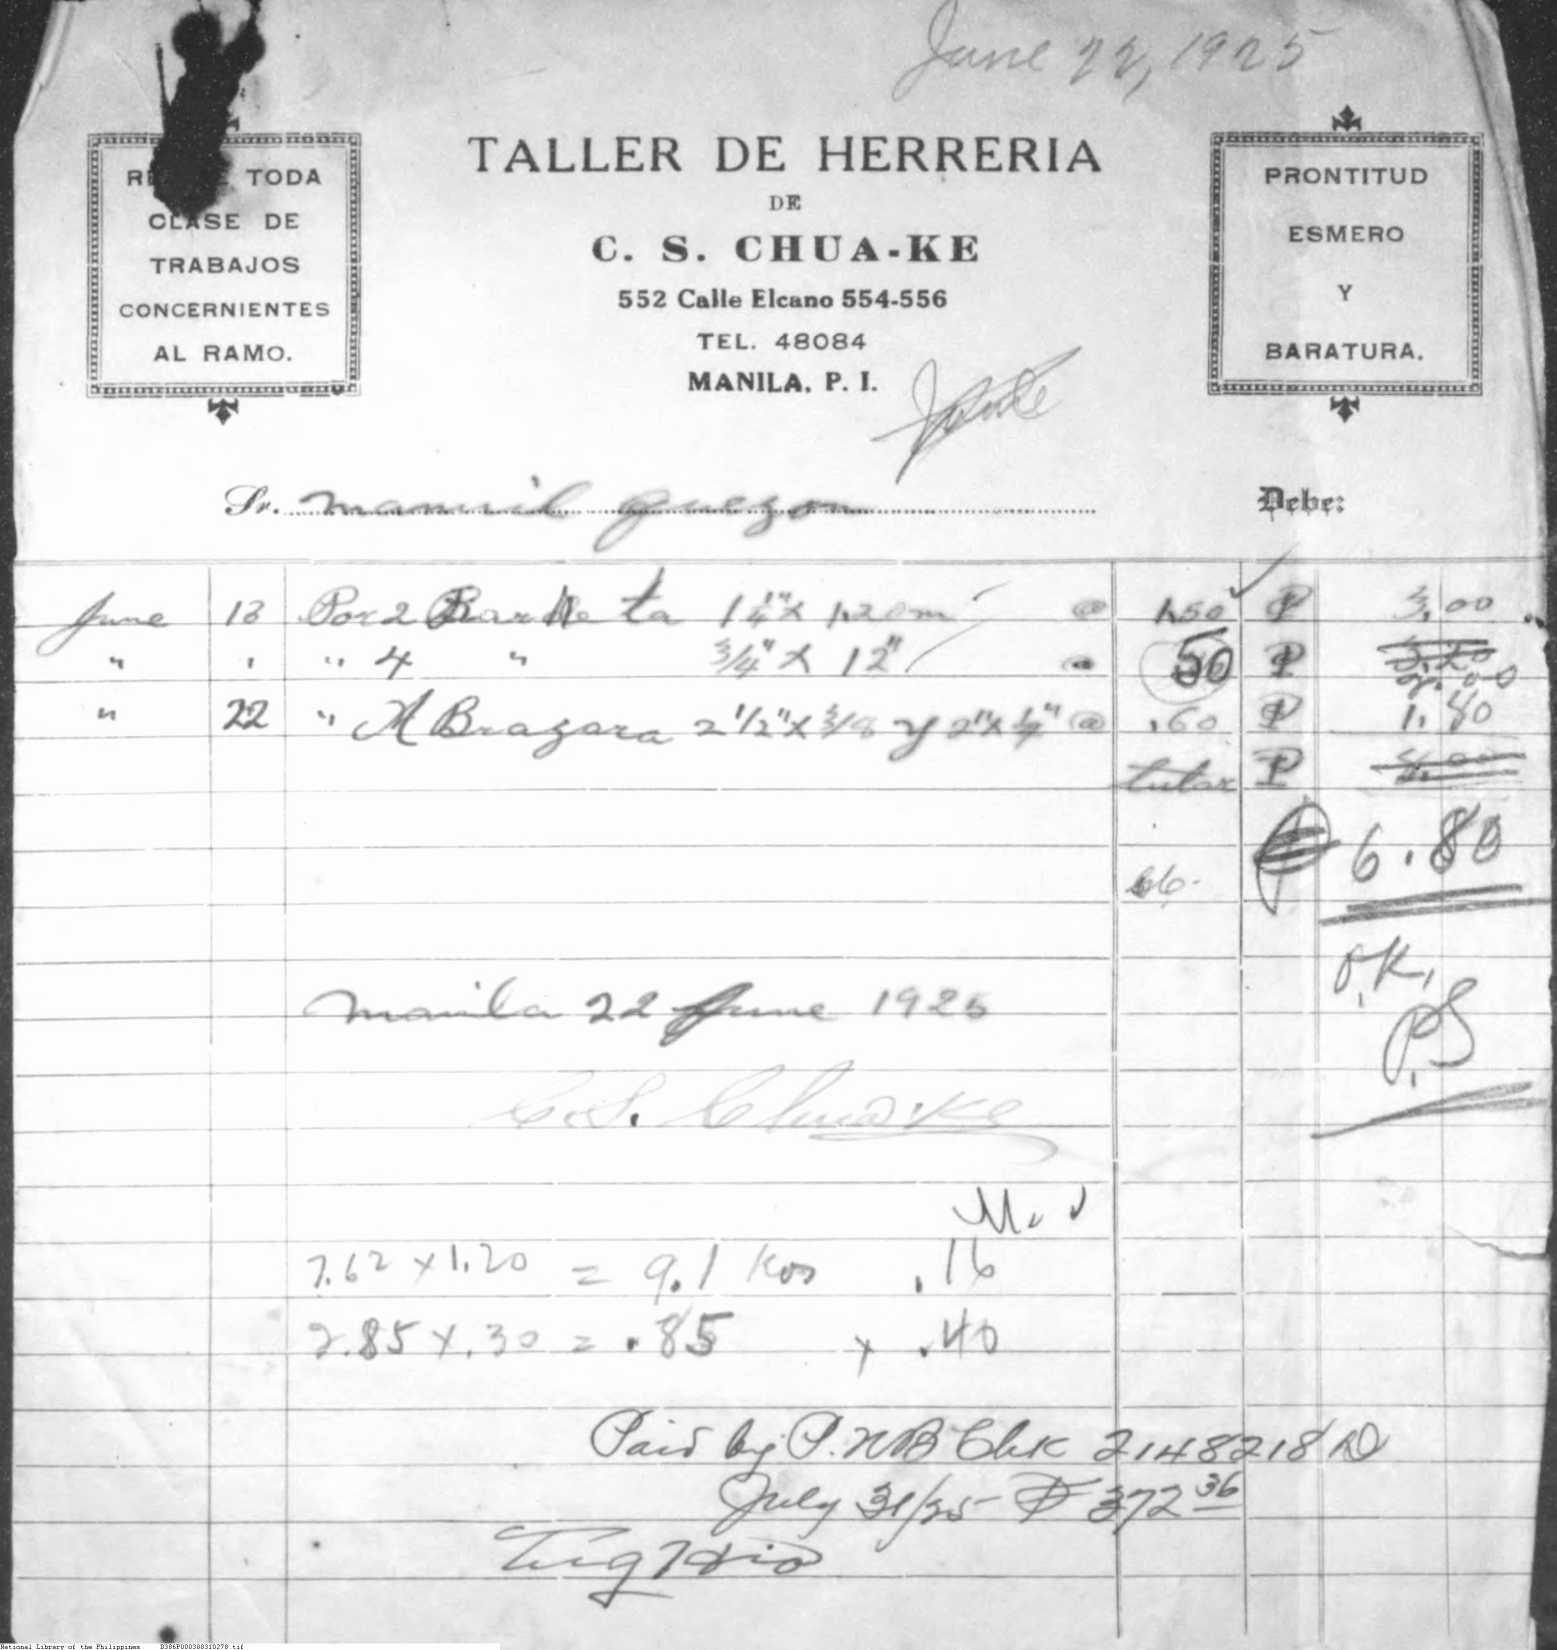 June 22, 1925
TODA
CLASE DE
TRABAJOS
CONCERNIENTES
AL RAMO.
TALLER DE HERRERIA
DE
C. S. CHUA-KE
552 Calle Elcano 554-556
TEL. 48084
MANILA, P. I.
PRONTITUD
ESMERO
Y
BARATURA.
Sr. Manuil Quezon Debe:
June 13 Por 2 Barreta 1 1/4" x 1.20m @ 1.50 ₱ 3.00
" " " 4 " 3/4" x 12" @ 50 ₱ 3.20
2.00
" 22 " Bragara 2 1/2" x 3/8 y 2" x 1/4" @ .60 ₱ 1.80
total ₱ 8.00
6.80
O.K.
P.S
Manila 22 June 1925
C. S. Chua-Ke
7.62 x 1.20 = 9.1 Kos .16
2.85 x .30 = .85 x .40
Paid by P.N.B Chk 2148218/D
July 31/25 - ₱ 372 36
National Library of the Philippines D386P000388310278.tif